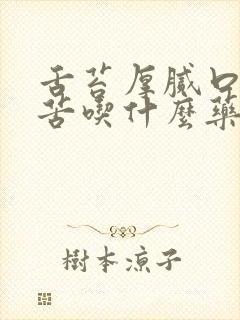 舌苔厚膩口
苦喫什麼藥
樹本涼子